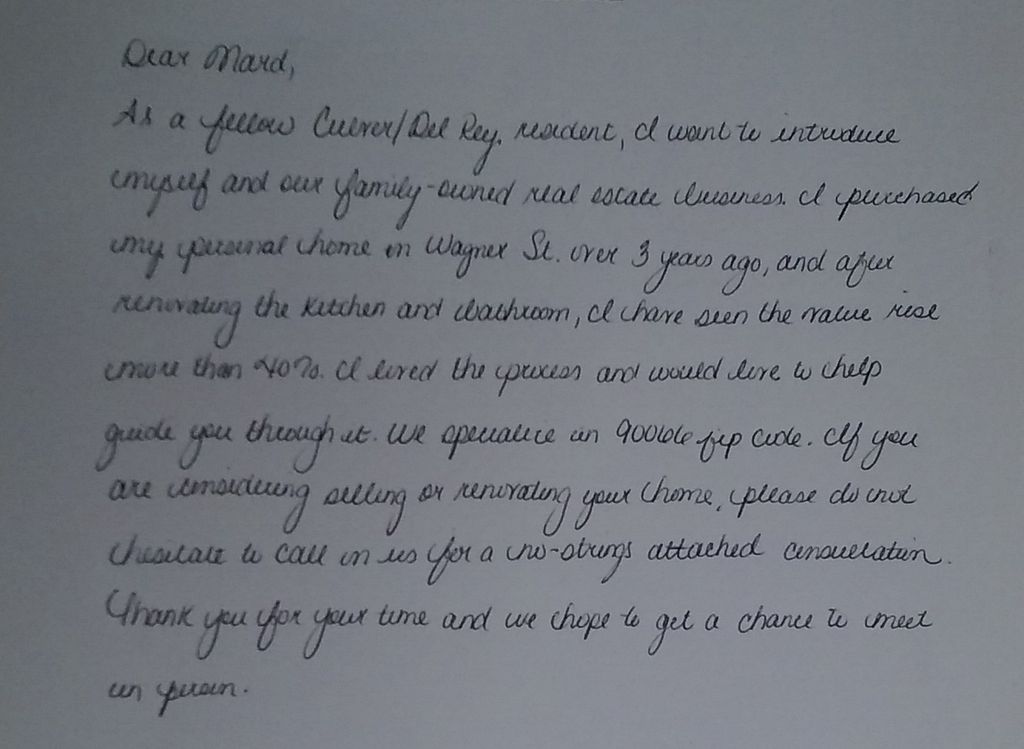 Dear Mard,
As a fellow Culver/Del Rey. resident, I want to introduce
myself and our family-owned real estate business. I purchased
my personal home on Wagner St. over 3 years ago, and after
renovating the kitchen and bathroom, I have seen the value rise
more than 40%. I loved the process and would love to help
guide you through it. We specialize in 90066 zip code. If you
are considering selling or renovating your home, please do not
hesitate to call on us for a no-strings attached consultation.
Thank you for your time and we hope to get a chance to meet
in person.